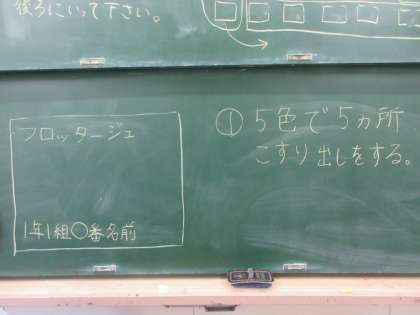 後ろにいって下さい。
フロッタージュ
1年1組○番名前
① 5色で5ヵ所
こすり出しをする。